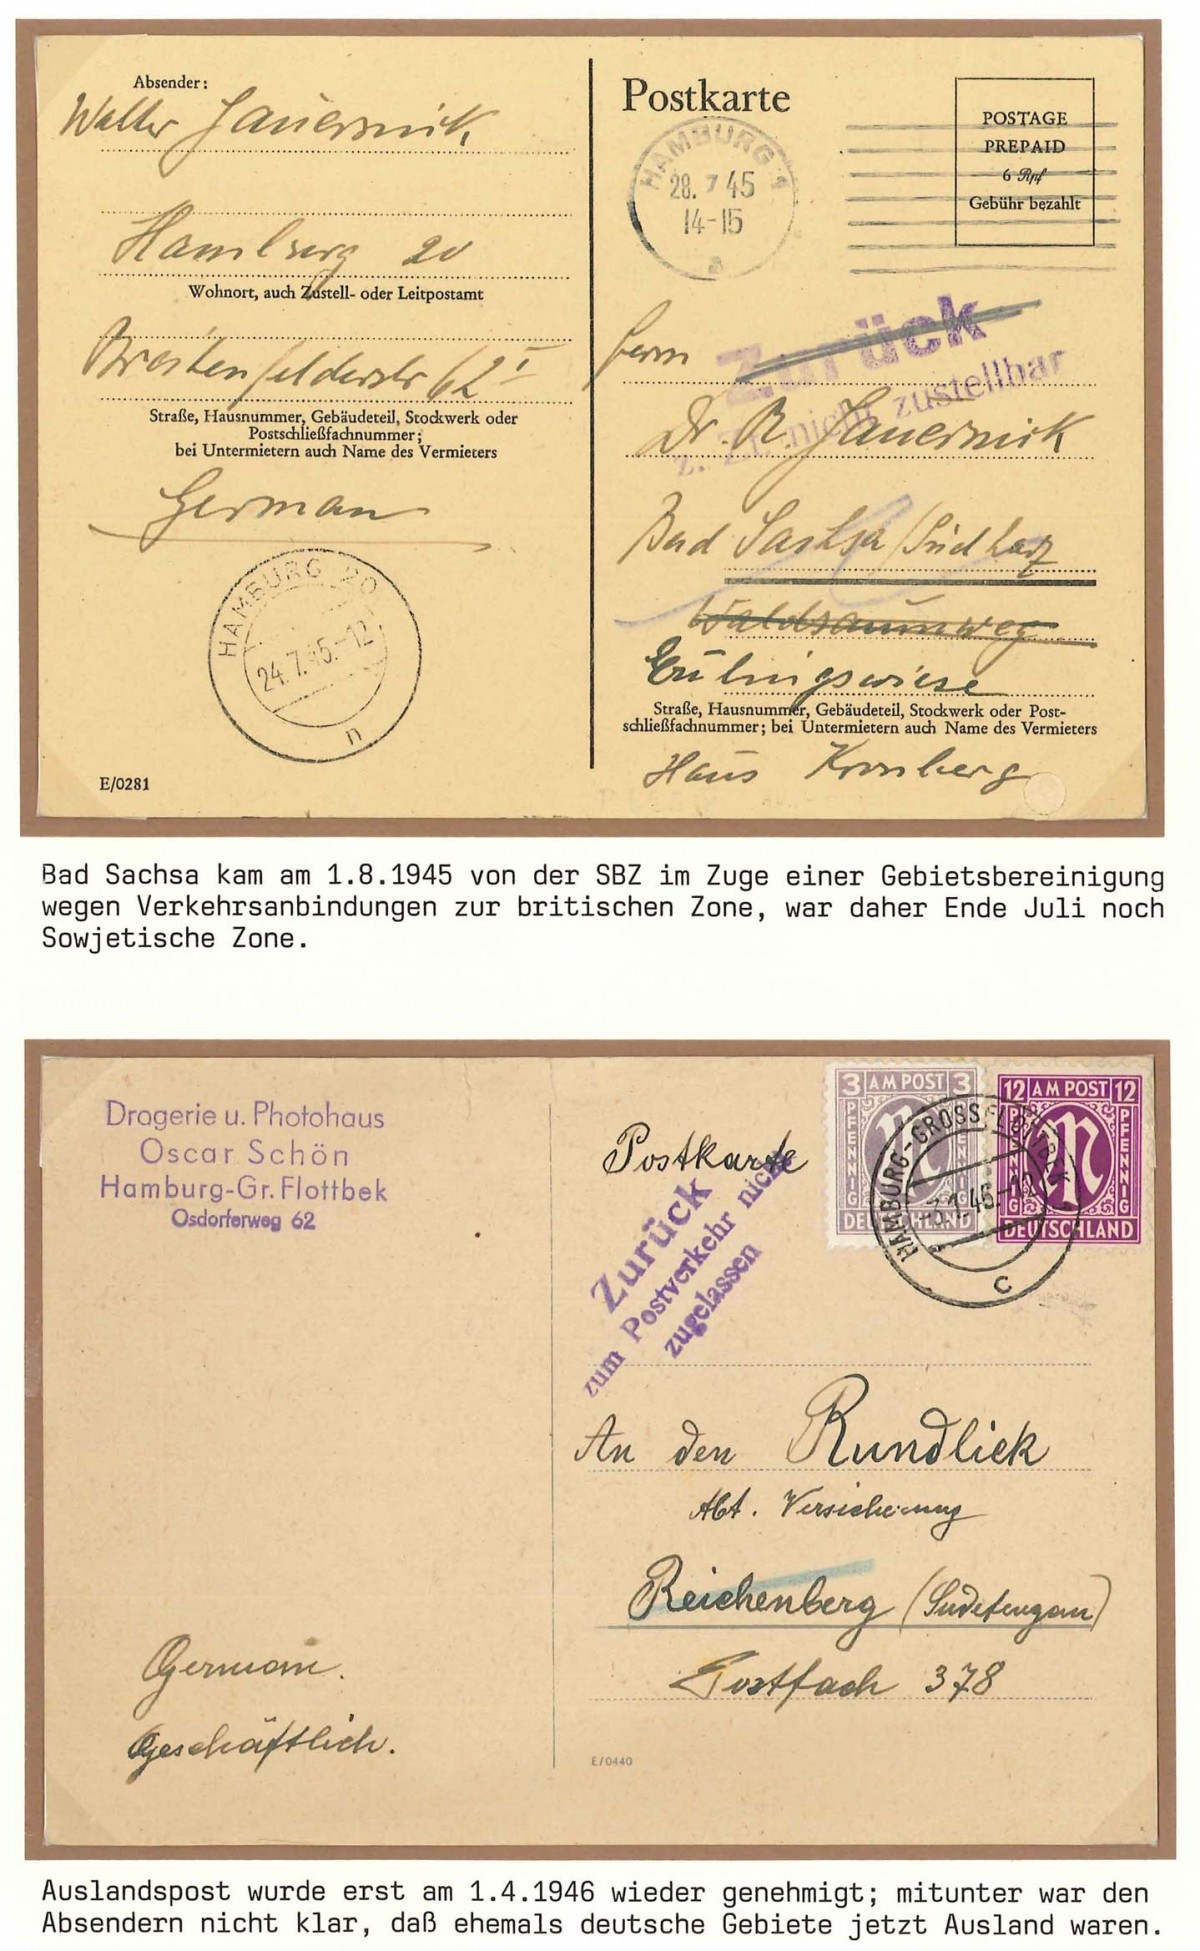 Absender:
Walter Jauernick
Hamburg 20
Wohnort, auch Zustell- oder Leitpostamt
Breitenfelderstr 62 I
Straße, Hausnummer, Gebäudeteil, Stockwerk oder
Postschließfachnummer;
bei Untermietern auch Name des Vermieters
German
HAMBURG 20
24.7.45.-12
n
E/0281
Postkarte
HAMBURG 1
28. 7 45
14-15
a
POSTAGE
PREPAID
6 Rpf
Gebühr bezahlt
Zurück
z. Zt. nicht zustellbar
Herrn
Dr. R. Jauernick
Bad Sachsa /Südharz
Waldsaumweg
Straße, Hausnummer, Gebäudeteil, Stockwerk oder Post-
schließfachnummer; bei Untermietern auch Name des Vermieters
Haus Kronberg
Bad Sachsa kam am 1.8.1945 von der SBZ im Zuge einer Gebietsbereinigung
wegen Verkehrsanbindungen zur britischen Zone, war daher Ende Juli noch
Sowjetische Zone.
Drogerie u. Photohaus
Oscar Schön
Hamburg-Gr. Flottbek
Osdorferweg 62
Postkarte
Zurück
zum Postverkehr nicht
zugelassen
3 AM POST 3
PFENNIG
PFENNIG
DEUTSCHLAND
12 AM POST 12
PFENNIG
PFENNIG
DEUTSCHLAND
HAMBURG-GROSS FLOTTBEK
-3.1.46.-12
c
An den Rundblick
Abt. Versicherung
Reichenberg (Sudetengau)
Postfach 378
German.
Geschäftlich.
E/0440
Auslandspost wurde erst am 1.4.1946 wieder genehmigt; mitunter war den
Absendern nicht klar, daß ehemals deutsche Gebiete jetzt Ausland waren.